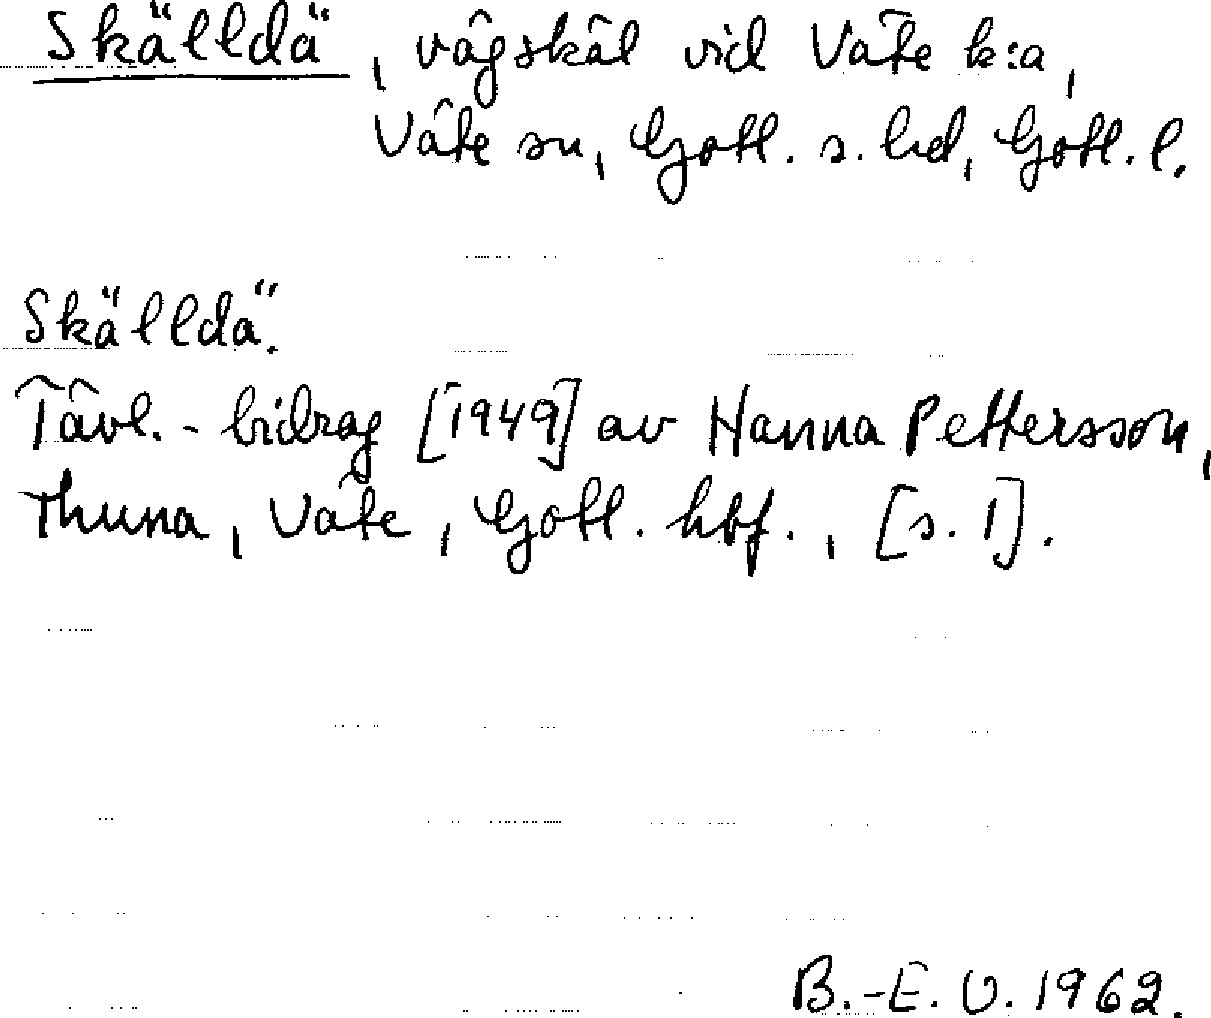 Skälldä, vägskäl vid Väte k:a,
Väte sn, Gotl. s. hd, Gotl. l.
Skälldä.
Tävl.-bidrag [1949] av Hanna Pettersson,
Thuna, Väte, Gotl. hbf., [s. 1].
B.-E. U. 1962.